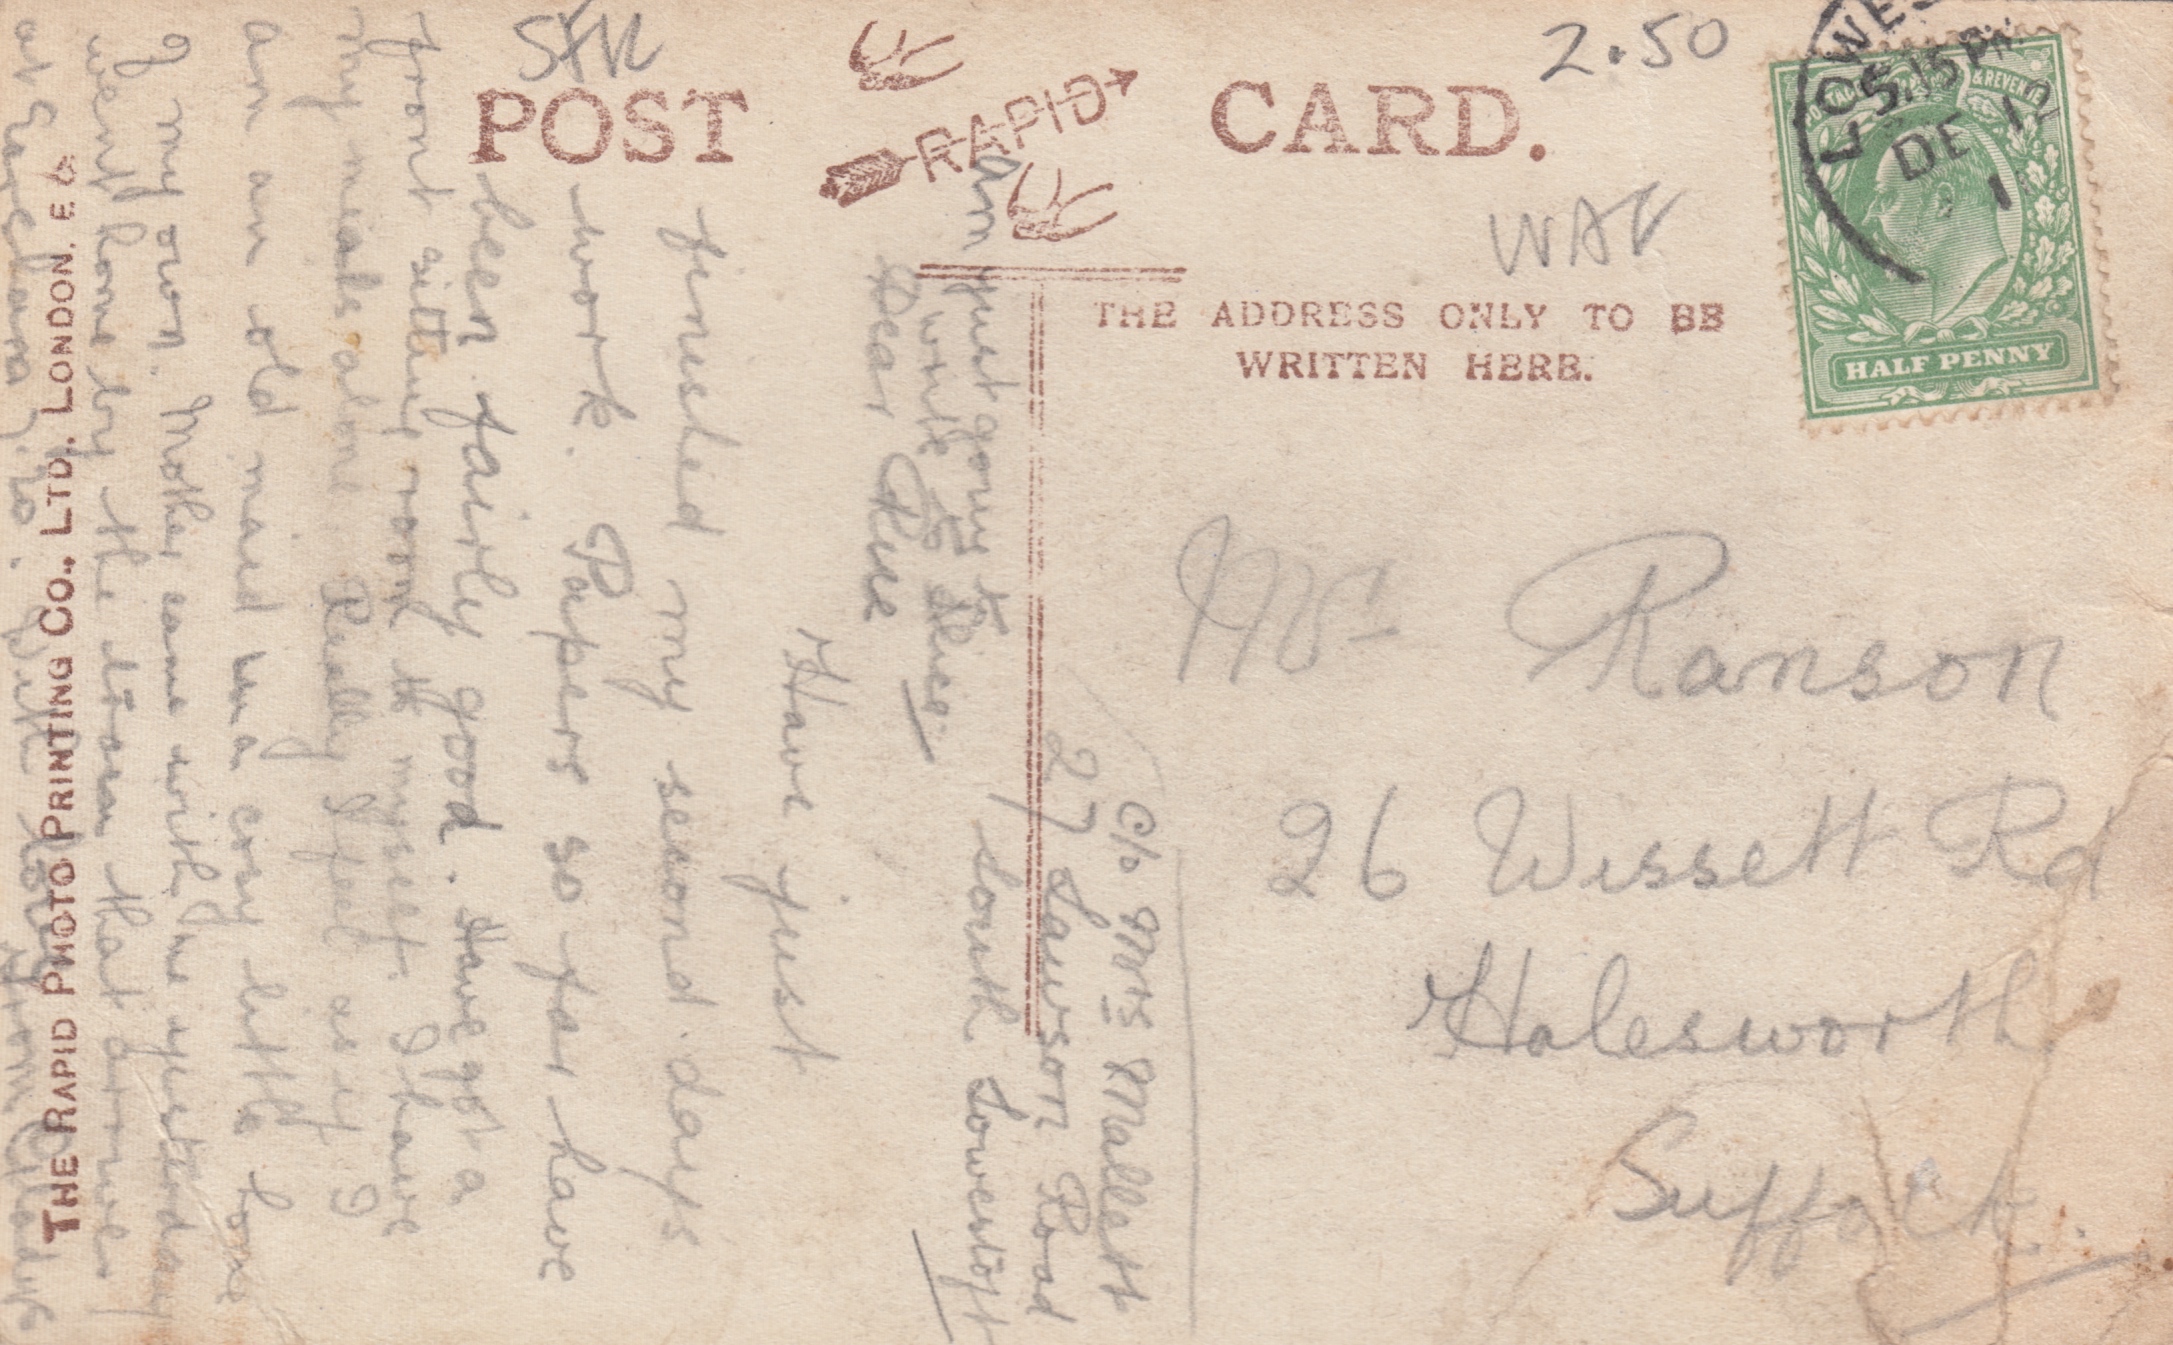 SFK
2.50
WAV
POST CARD.
RAPID
THE ADDRESS ONLY TO BE
WRITTEN HERE.
LOWES
5.15 PM
DE 12
1
POSTAGE & REVENUE
HALF PENNY
Mrs Ranson
26 Wissett Rd
Halesworth
Suffolk.
c/o Mrs Mallett
27 Lawson Road
South Lowestoft
am just going to
write to
Dear
Have just
finished my second days
work. Papers so far have
been fairly good. Have got a
front sitting room to myself. I have
my meals alone. Really I feel as if I
am an old maid in a cosy little home
of my own. Mother came with me yesterday
went home by the train that arrives
at
With love from Gladys
THE RAPID PHOTO PRINTING CO., LTD. LONDON. E.C.